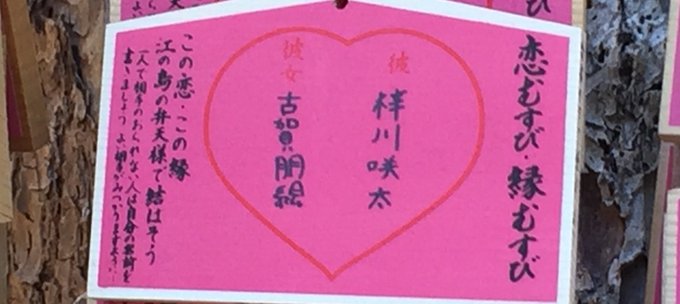 恋むすび・縁むすび
彼 梓川咲太
彼女 古賀朋絵
この恋・この縁
江の島の弁天様で結ばそう
一人で相手のおられない人は自分の名前を
書きましょう よい相手がみつかりますよう…